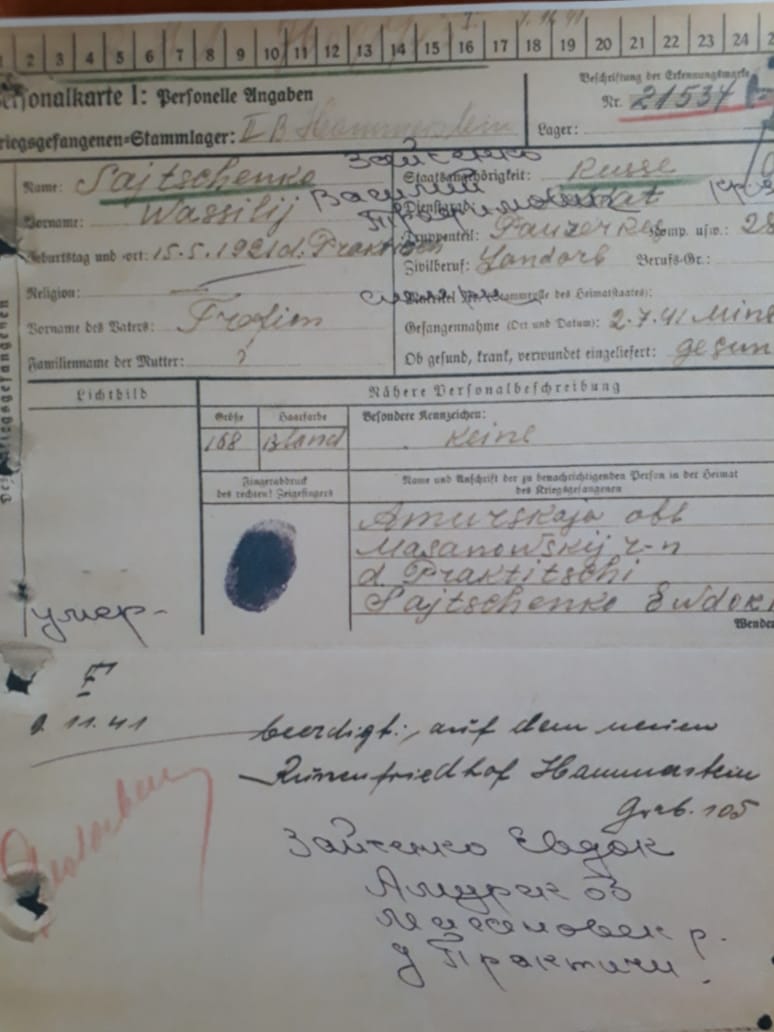 1 2 3 4 5 6 7 8 9 10 11 12 13 14 15 16 17 18 19 20 21 22 23 24
Personalkarte I: Personelle Angaben
Kriegsgefangenen-Stammlager: II B Hammerstein
Beschriftung der Erkennungsmarke
Nr. 21534
Lager:
Зайченко
Name: Sajtschenko
Staatsangehörigkeit: Russe
Василий
Vorname: Wassilij
Dienstgrad:
Truppenteil: Panzer Komp. usw.: 28
Geburtstag und -ort: 15.5.1921 d. Praktitschi
Zivilberuf: Landarb Berufs-Gr.:
Religion:
Matrikel Nr. (Stammrolle des Heimatstaates):
Vorname des Vaters: Trofim
Gefangennahme (Ort und Datum): 2.7.41 Mins
Familienname der Mutter: ?
Ob gesund, krank, verwundet eingeliefert: gesun
Lichtbild
Nähere Personalbeschreibung
Größe Haarfarbe Besondere Kennzeichen:
168 Bland keine
Fingerabdruck
des rechten! Zeigefingers
Name und Anschrift der zu benachrichtigenden Person in der Heimat
des Kriegsgefangenen
Amurskaja obl
Masanowskij r-n
d. Praktitschi
Sajtschenko Ewdoki
Wenden
умер-
F
11.41 beerdigt: auf dem neuen
Russenfriedhof Hammerstein
Grab. 105
Gestorben
Зайченко Евдок
Амурск об
Мазановск р.
д Практичи.